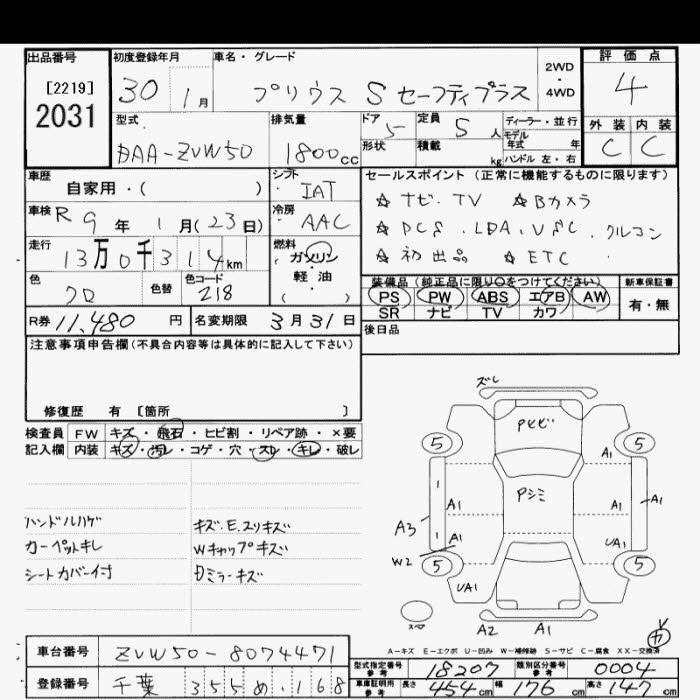 出品番号
[2219]
2031
初度登録年月
30 1月
車名・グレード
プリウス S セーフティプラス
2WD
・
4WD
評価点
4
外装 内装
C C
型式
DAA-ZVW50
排気量
1800cc
ドア 5
形状
定員 5人
積載 kg
ディーラー・並行
モデル
年式 年
ハンドル 左・右
車歴
自家用・( )
シフト
IAT
車検 R9年 1月(23日)
冷房
AAC
走行
13万0千314km
燃料
ガソリン
・
軽油
( )
色
クロ
色替
色コード
218
R券 11,480円
名変期限 3月31日
セールスポイント(正常に機能するものに限ります)
☆ナビ.TV ☆Bカメラ
☆PCS.LDA.VSC.クルコン
☆初出品 ☆ETC
装備品(純正品に限り○をつけてください)
PS PW ABS エアB AW
SR ナビ TV カワ
新車保証書
有・無
後日品
注意事項申告欄(不具合内容等は具体的に記入して下さい)
修復歴 有 [箇所 ]
検査員 FW キズ・飛石・ヒビ割・リペア跡・×要
記入欄 内装 キズ・汚レ・コゲ・穴・スレ・キレ・破レ
ハンドルハゲ
カーペットキレ
シートカバー付
キズ.E.スリキズ
Wキャップキズ
ミラーキズ
ズレ
Pトビ
5 5
A1
Pシミ
A1 A1 A1
A3
A1
UA1
W2
5 5
UA1
スペア
A2 A1
A-キズ E-エクボ U-凹み W-補修跡 S-サビ C-腐食 XX-交換済
車台番号 ZVW50-8074471
登録番号 千葉 355 め.168
型式指定番号
参考
18207
類別区分番号
参考
0004
車庫証明用
参考
長さ 454cm 幅 176cm 高さ 147cm